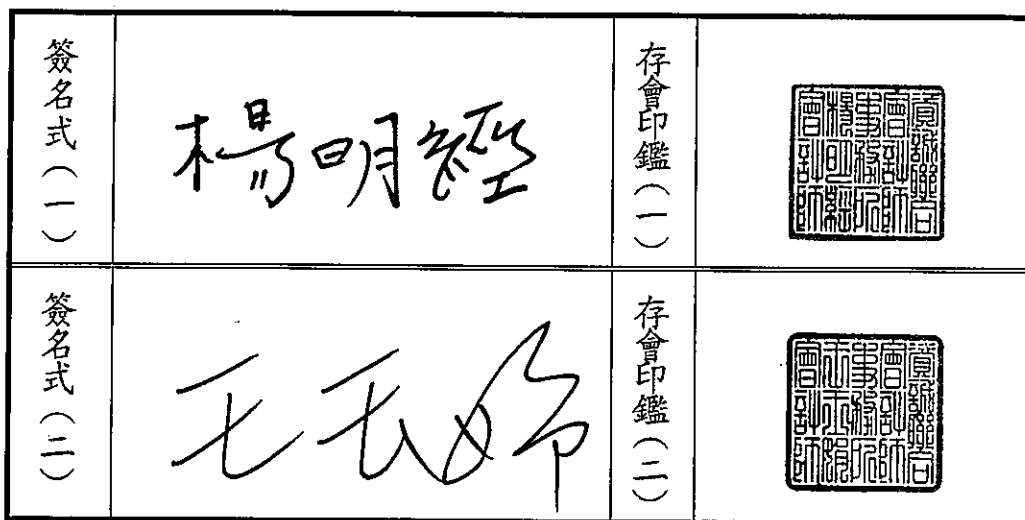 簽名式(一)
楊明經
存會印鑑(一)
資誠聯合
會計師
事務所
楊明經
會計師
簽名式(二)
王玉
存會印鑑(二)
資誠聯合
會計師
事務所
王玉
會計師